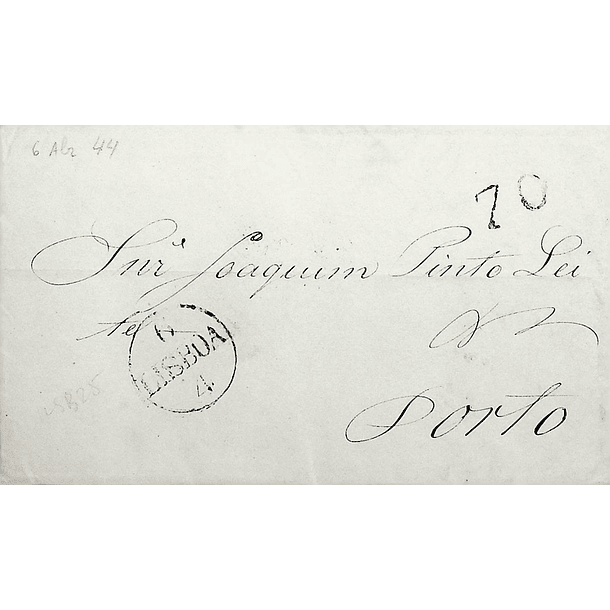 6 Abr 44
70
Snr. Joaquim Pinto Lei
te
6
LISBOA
4
LSB25
Porto